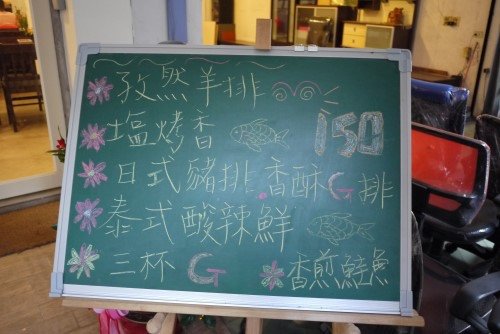 孜然羊排
塩烤香 150
日式豬排 香酥G排
泰式酸辣鮮
三杯G 香煎鮭魚